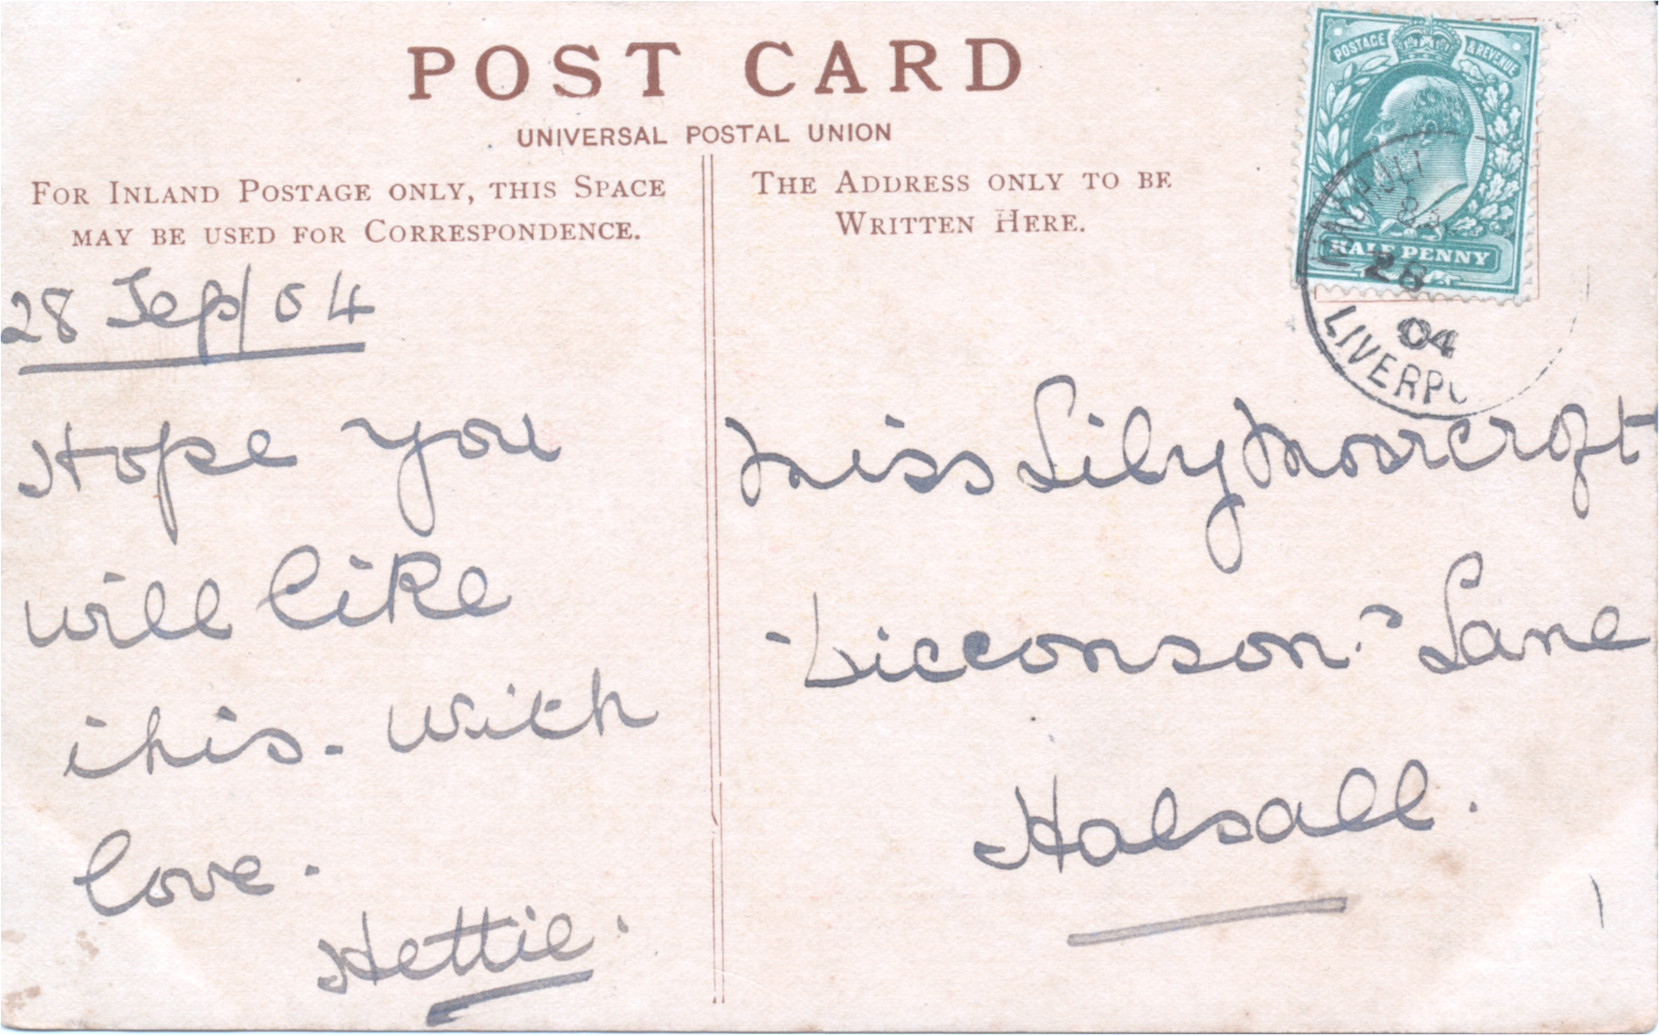 POST CARD
UNIVERSAL POSTAL UNION
FOR INLAND POSTAGE ONLY, THIS SPACE
MAY BE USED FOR CORRESPONDENCE.
THE ADDRESS ONLY TO BE
WRITTEN HERE.
POSTAGE & REVENUE
HALF PENNY
28
04
LIVERPO
28 Sep/04
Hope you
will like
this. With
love.
Hettie.
Miss Lily Moorcroft
"Licconson" Lane
Halsall.